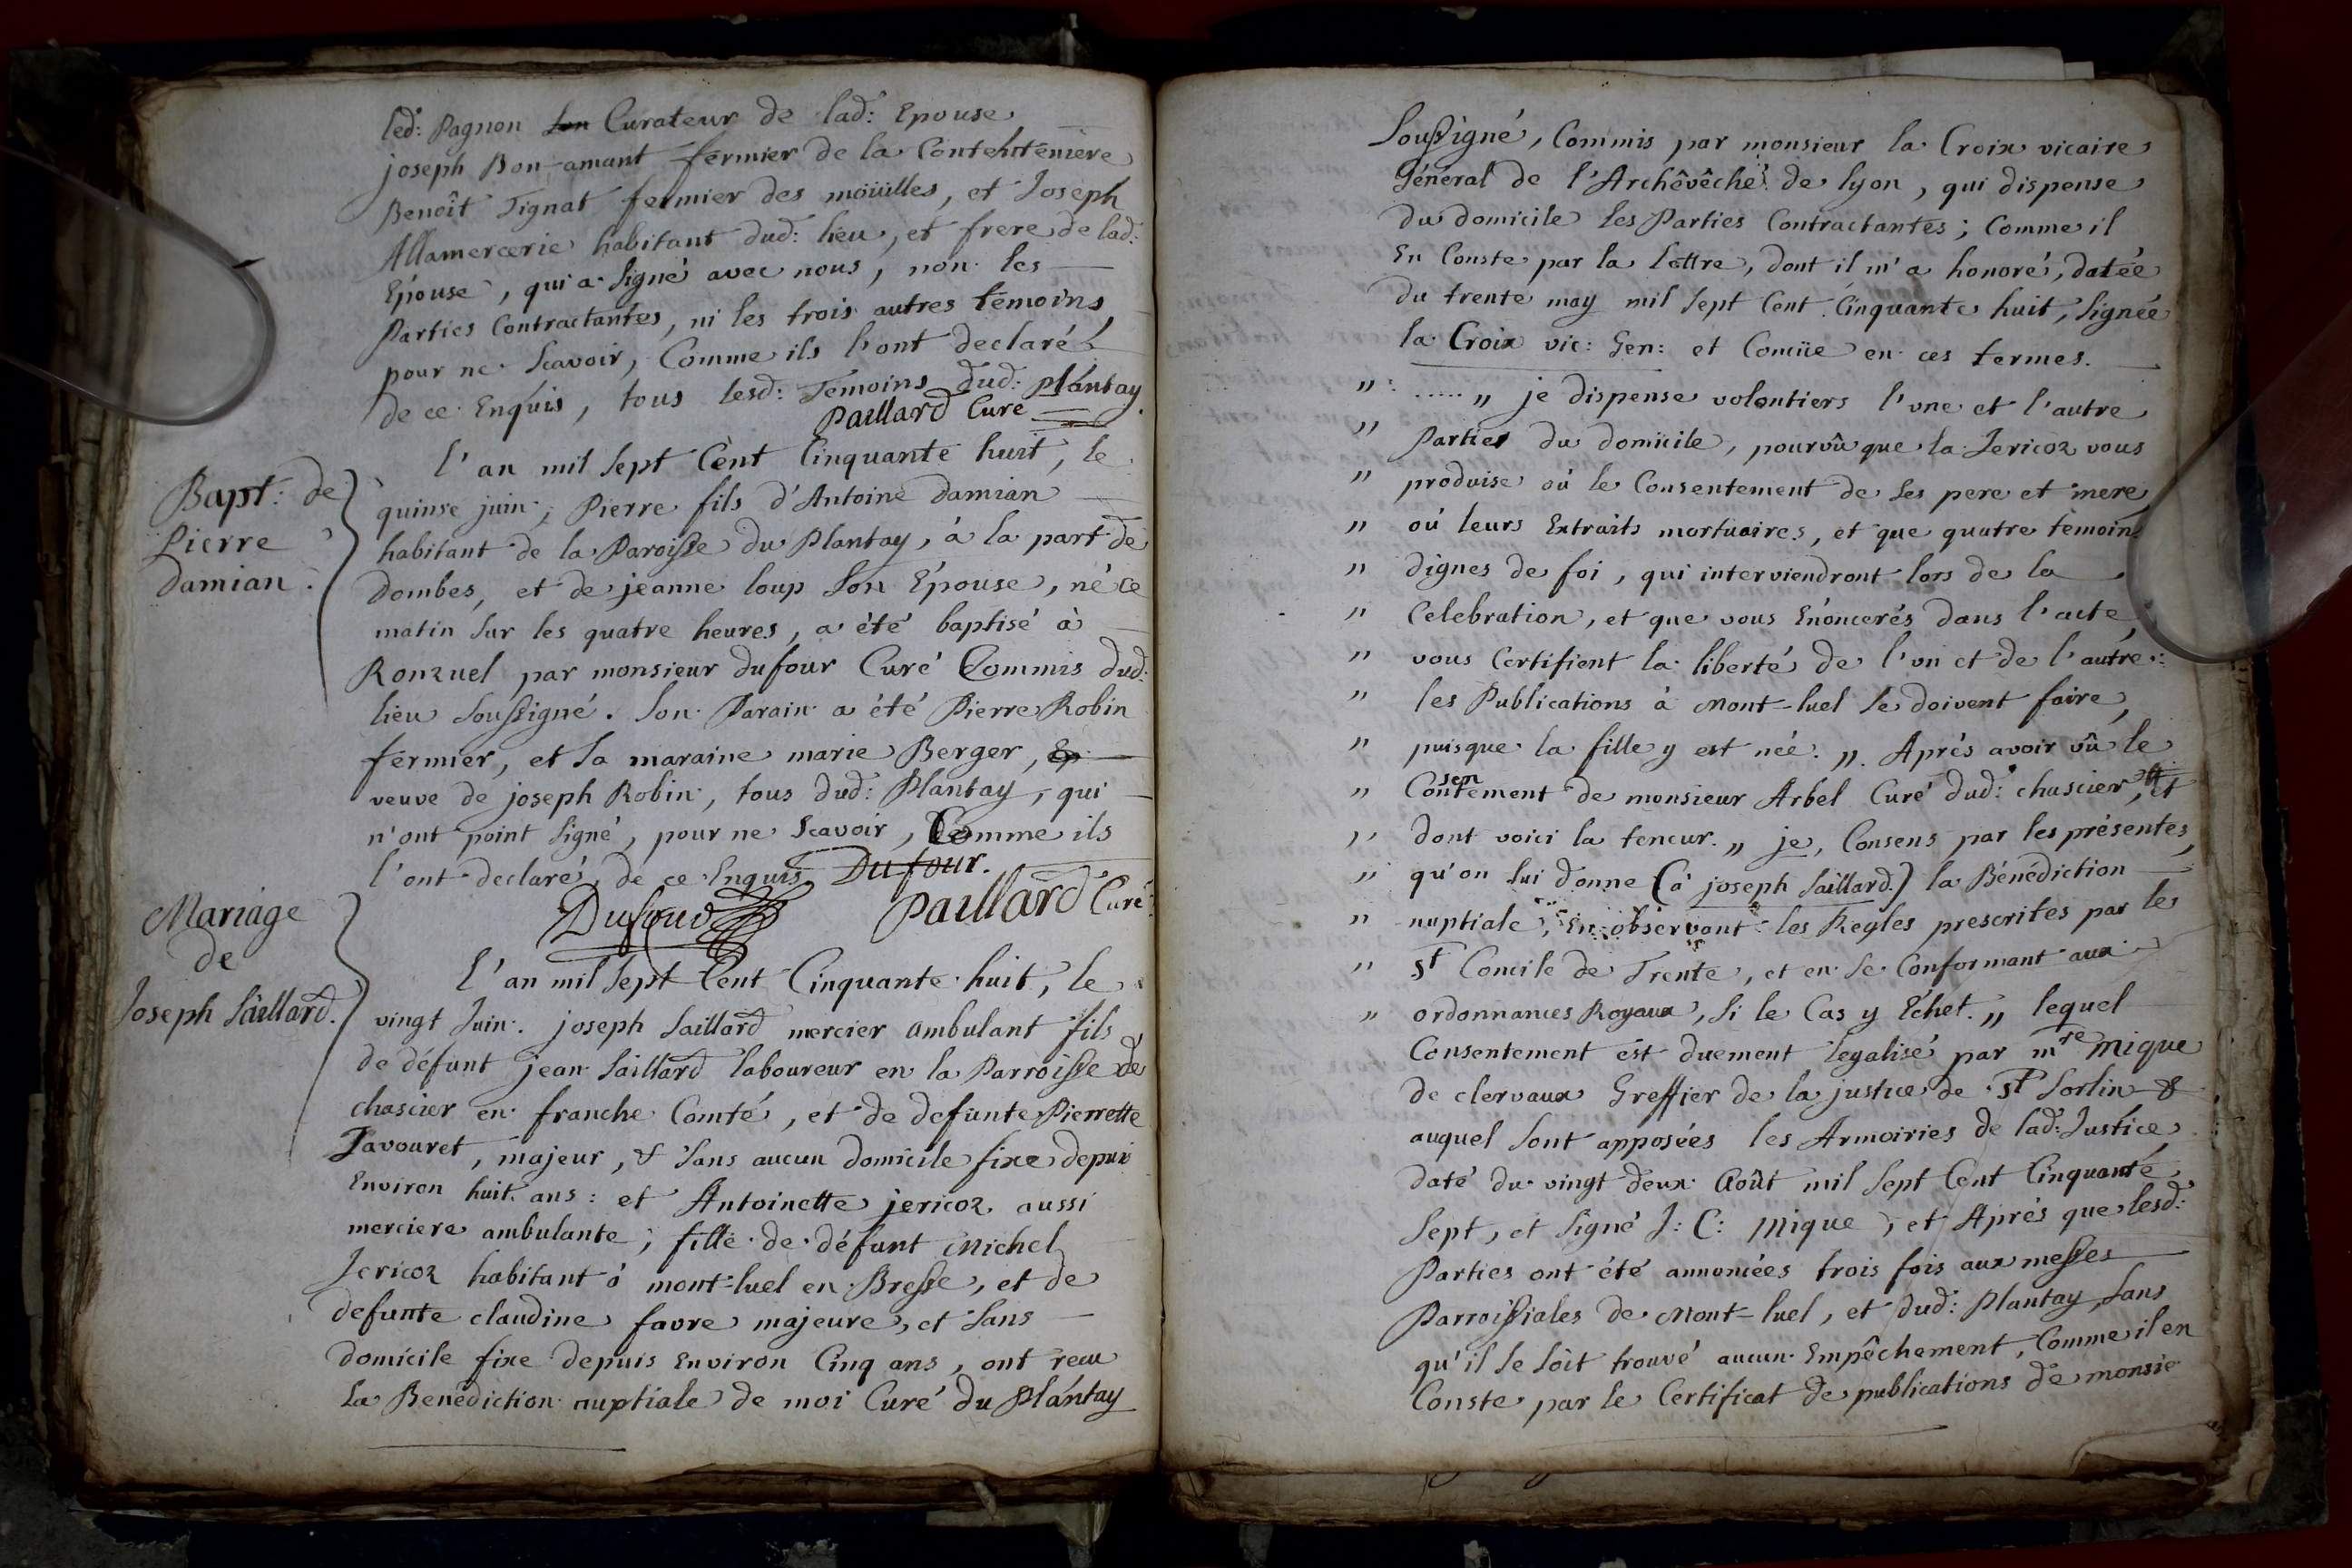 led: Pagnon son Curateur de lad: Epouse
joseph Bon-amant fermier de la Contentenière
Benoît Tignat fermier des moüilles, et Joseph
Allamercerie habitant dud: lieu, et frere de lad:
Epouse, qui a signé avec nous, non les
Parties Contractantes, ni les trois autres témoins
pour ne Scavoir, Comme ils l'ont declaré
de ce Enquis, tous lesd: Temoins dud: plántay.
Paillard Curé
Bapt: de
Pierre
damian.
l'an mil sept Cent Cinquante huit, le
quinse juin, Pierre fils d'Antoine damian
habitant de la Paroisse du Plantay, à la part de
Dombes, et de jeanne loup son Epouse, né ce
matin sur les quatre heures, a été baptisé à
Ronzuel par monsieur dufour Curé Commis dud:
lieu soussigné. son Parain a été Pierre Robin
fermier, et sa maraine marie Berger, Ep
veuve de joseph Robin, tous dud: Plantay, qui
n'ont point signé, pour ne Scavoir, Comme ils
l'ont declaré, de ce Enquis Dufour.
Dufour Paillard Curé
Mariage
de
Joseph Saillard.
l'an mil sept Cent Cinquante huit, le
vingt Juin. joseph Saillard mercier ambulant fils
de défunt jean Saillard laboureur en la Parroisse de
chascier en franche Comté, et de defunte Pierrette
Javouret, majeur, & sans aucun domicile fixe depuis
Environ huit ans: et Antoinette jericoz aussi
merciere ambulante; fille de défunt Michel
Jericoz habitant à mont-luel en Bresse, et de
defunte claudine favre majeure, et sans
domicile fixe depuis Environ Cinq ans, ont recu
la Benédiction nuptiale de moi Curé du Plántay
Soussigné, Commis par monsieur la Croix vicaire
Général de l'Archêvêché de lyon, qui dispense
du domicile les Parties Contractantes; Comme il
En Conste par la lettre, dont il m'a honoré, datée
du trente may mil sept Cent Cinquante huit, signée
la Croix vic: Gen: et Concüe en ces termes.
" ..... „ je dispense volontiers l'une et l'autre
" Parties du domicile, pourvû que la Jericoz vous
" produise où le Consentement de ses pere et mere
" où leurs Extraits mortuaires, et que quatre témoins
" dignes de foi, qui interviendront lors de la
" Celebration, et que vous Enoncerés dans l'acte,
" vous Certifient la liberté de l'un et de l'autre:
" les Publications à Mont-luel se doivent faire,
" puisque la fille y est née. „. Aprés avoir vû le
" Consentement de monsieur Arbel Curé dud: chascier, et
" dont voici la teneur. „ je, Consens par les présentes,
" qu'on lui donne (à joseph Saillard) la Bénédiction
" nuptiale, En observant les Regles prescrites par les
" St Concile de Trente, et en se Conformant aux
" ordonnances Royaux, si le Cas y Echet. „ lequel
Consentement est duement legalisé par mre Mique
de clervaux Greffier de la justice de St Sorlin &
auquel sont apposées les Armoiries de lad: Justice
daté du vingt deux Août mil sept Cent Cinquante
sept, et signé J: C: Mique, et Aprés que lesd:
Parties ont été annoncées trois fois aux messes
Parroissiales de Mont-luel, et dud: Plantay, sans
qu'il se soit trouvé aucun Empêchement, Comme il en
Conste par le Certificat de publications de monsie